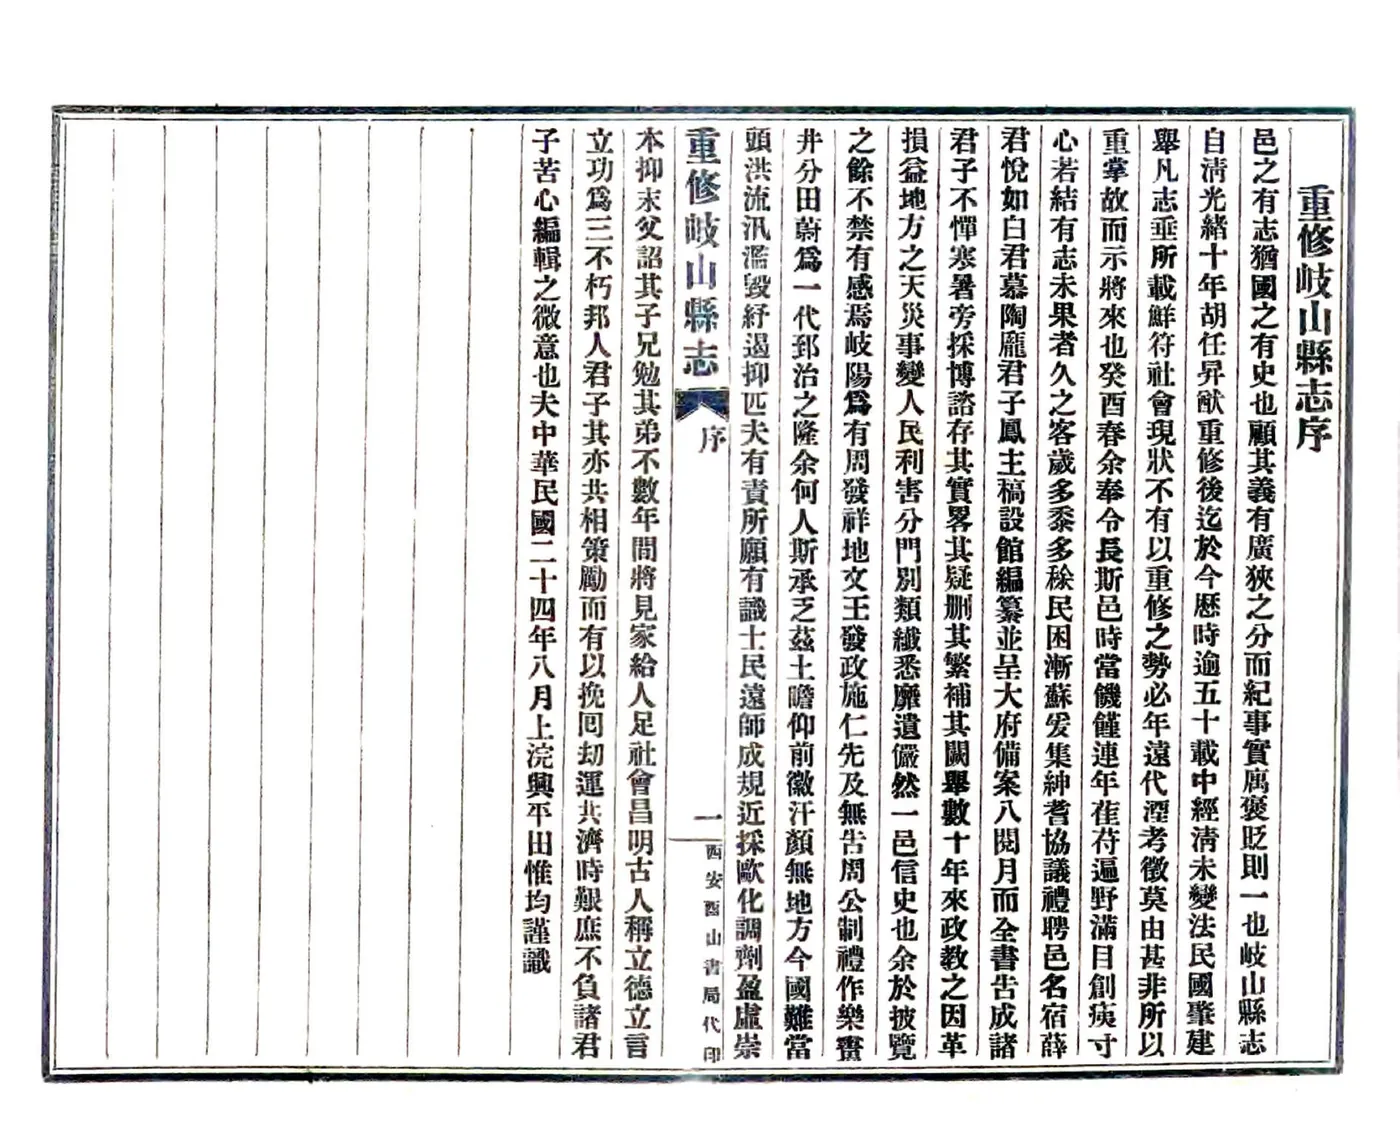 重修岐山縣志序
邑之有志猶國之有史也顧其義有廣狹之分而紀事實寓褒貶則一也岐山縣志
自淸光緒十年胡任昇猷重修後迄於今歷時逾五十載中經淸末變法民國肇建
舉凡志乘所載鮮符社會現狀不有以重修之勢必年遠代湮考徵莫由甚非所以
重掌故而示將來也癸酉春余奉令長斯邑時當饑饉連年萑苻遍野滿目創痍寸
心若結有志未果者久之客歲多黍多稌民困漸蘇爰集紳耆協議禮聘邑名宿薛
君悅如白君慕陶龐君子鳳主稿設館編纂並呈大府備案八閱月而全書吿成諸
君子不憚寒暑旁採博諮存其實畧其疑删其繁補其闕舉數十年來政教之因革
損益地方之天災事變人民利害分門別類纖悉靡遺儼然一邑信史也余於披覽
之餘不禁有感焉岐陽爲有周發祥地文王發政施仁先及無吿周公制禮作樂畫
井分田蔚爲一代郅治之隆余何人斯承乏茲土瞻仰前徽汗顏無地方今國難當
頭洪流汎濫毀紓遏抑匹夫有責所願有識士民遠師成規近採歐化調劑盈虛崇
重修岐山縣志 序 一 西安酉山書局代印
本抑末父詔其子兄勉其弟不數年間將見家給人足社會昌明古人稱立德立言
立功爲三不朽邦人君子其亦共相策勵而有以挽囘刧運共濟時艱庶不負諸君
子苦心編輯之微意也夫中華民國二十四年八月上浣興平田惟均謹識